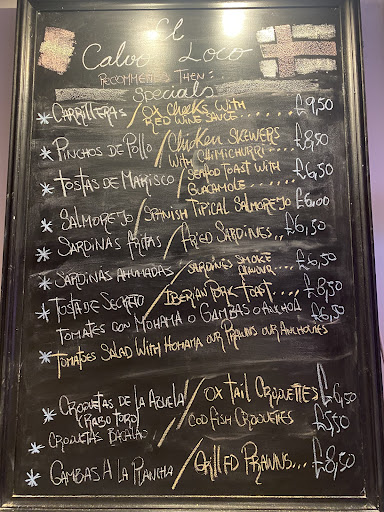 El
Calvo Loco
RECOMMENDS THEN:
Specials
* CARRILLERAS / OX CHEEKS WITH RED WINE SAUCE ...... £9,50
* PINCHOS DE POLLO / CHICKEN SKEWERS WITH CHIMICHURRI ... £8,50
* TOSTAS DE MARISCO / SEAFOOD TOAST WITH GUACAMOLE ...... £6,50
* SALMOREJO / SPANISH TIPICAL SALMOREJO £6,00
* SARDINAS FRITAS / FRIED SARDINES... £6,50
* SARDINAS AHUMADAS / SARDINES SMOKE FLAVOUR... £6,50
* TOSTA DE SECRETO / IBERIAN PORK TOAST... £8,50
TOMATES CON MOHAMA O GAMBAS O ANCHOA £6,50
* TOMATOES SALAD WITH MOHAMA OUR PRAWNS OUR ANCHOVIES
* CROQUETAS DE LA ABUELA / OX TAIL CROQUETTES £6,50
(RABO TORO)
* CROQUETAS BACALAO / COD FISH CROQUETTES £5,50
* GAMBAS A LA PLANCHA / GRILLED PRAWNS... £8,50